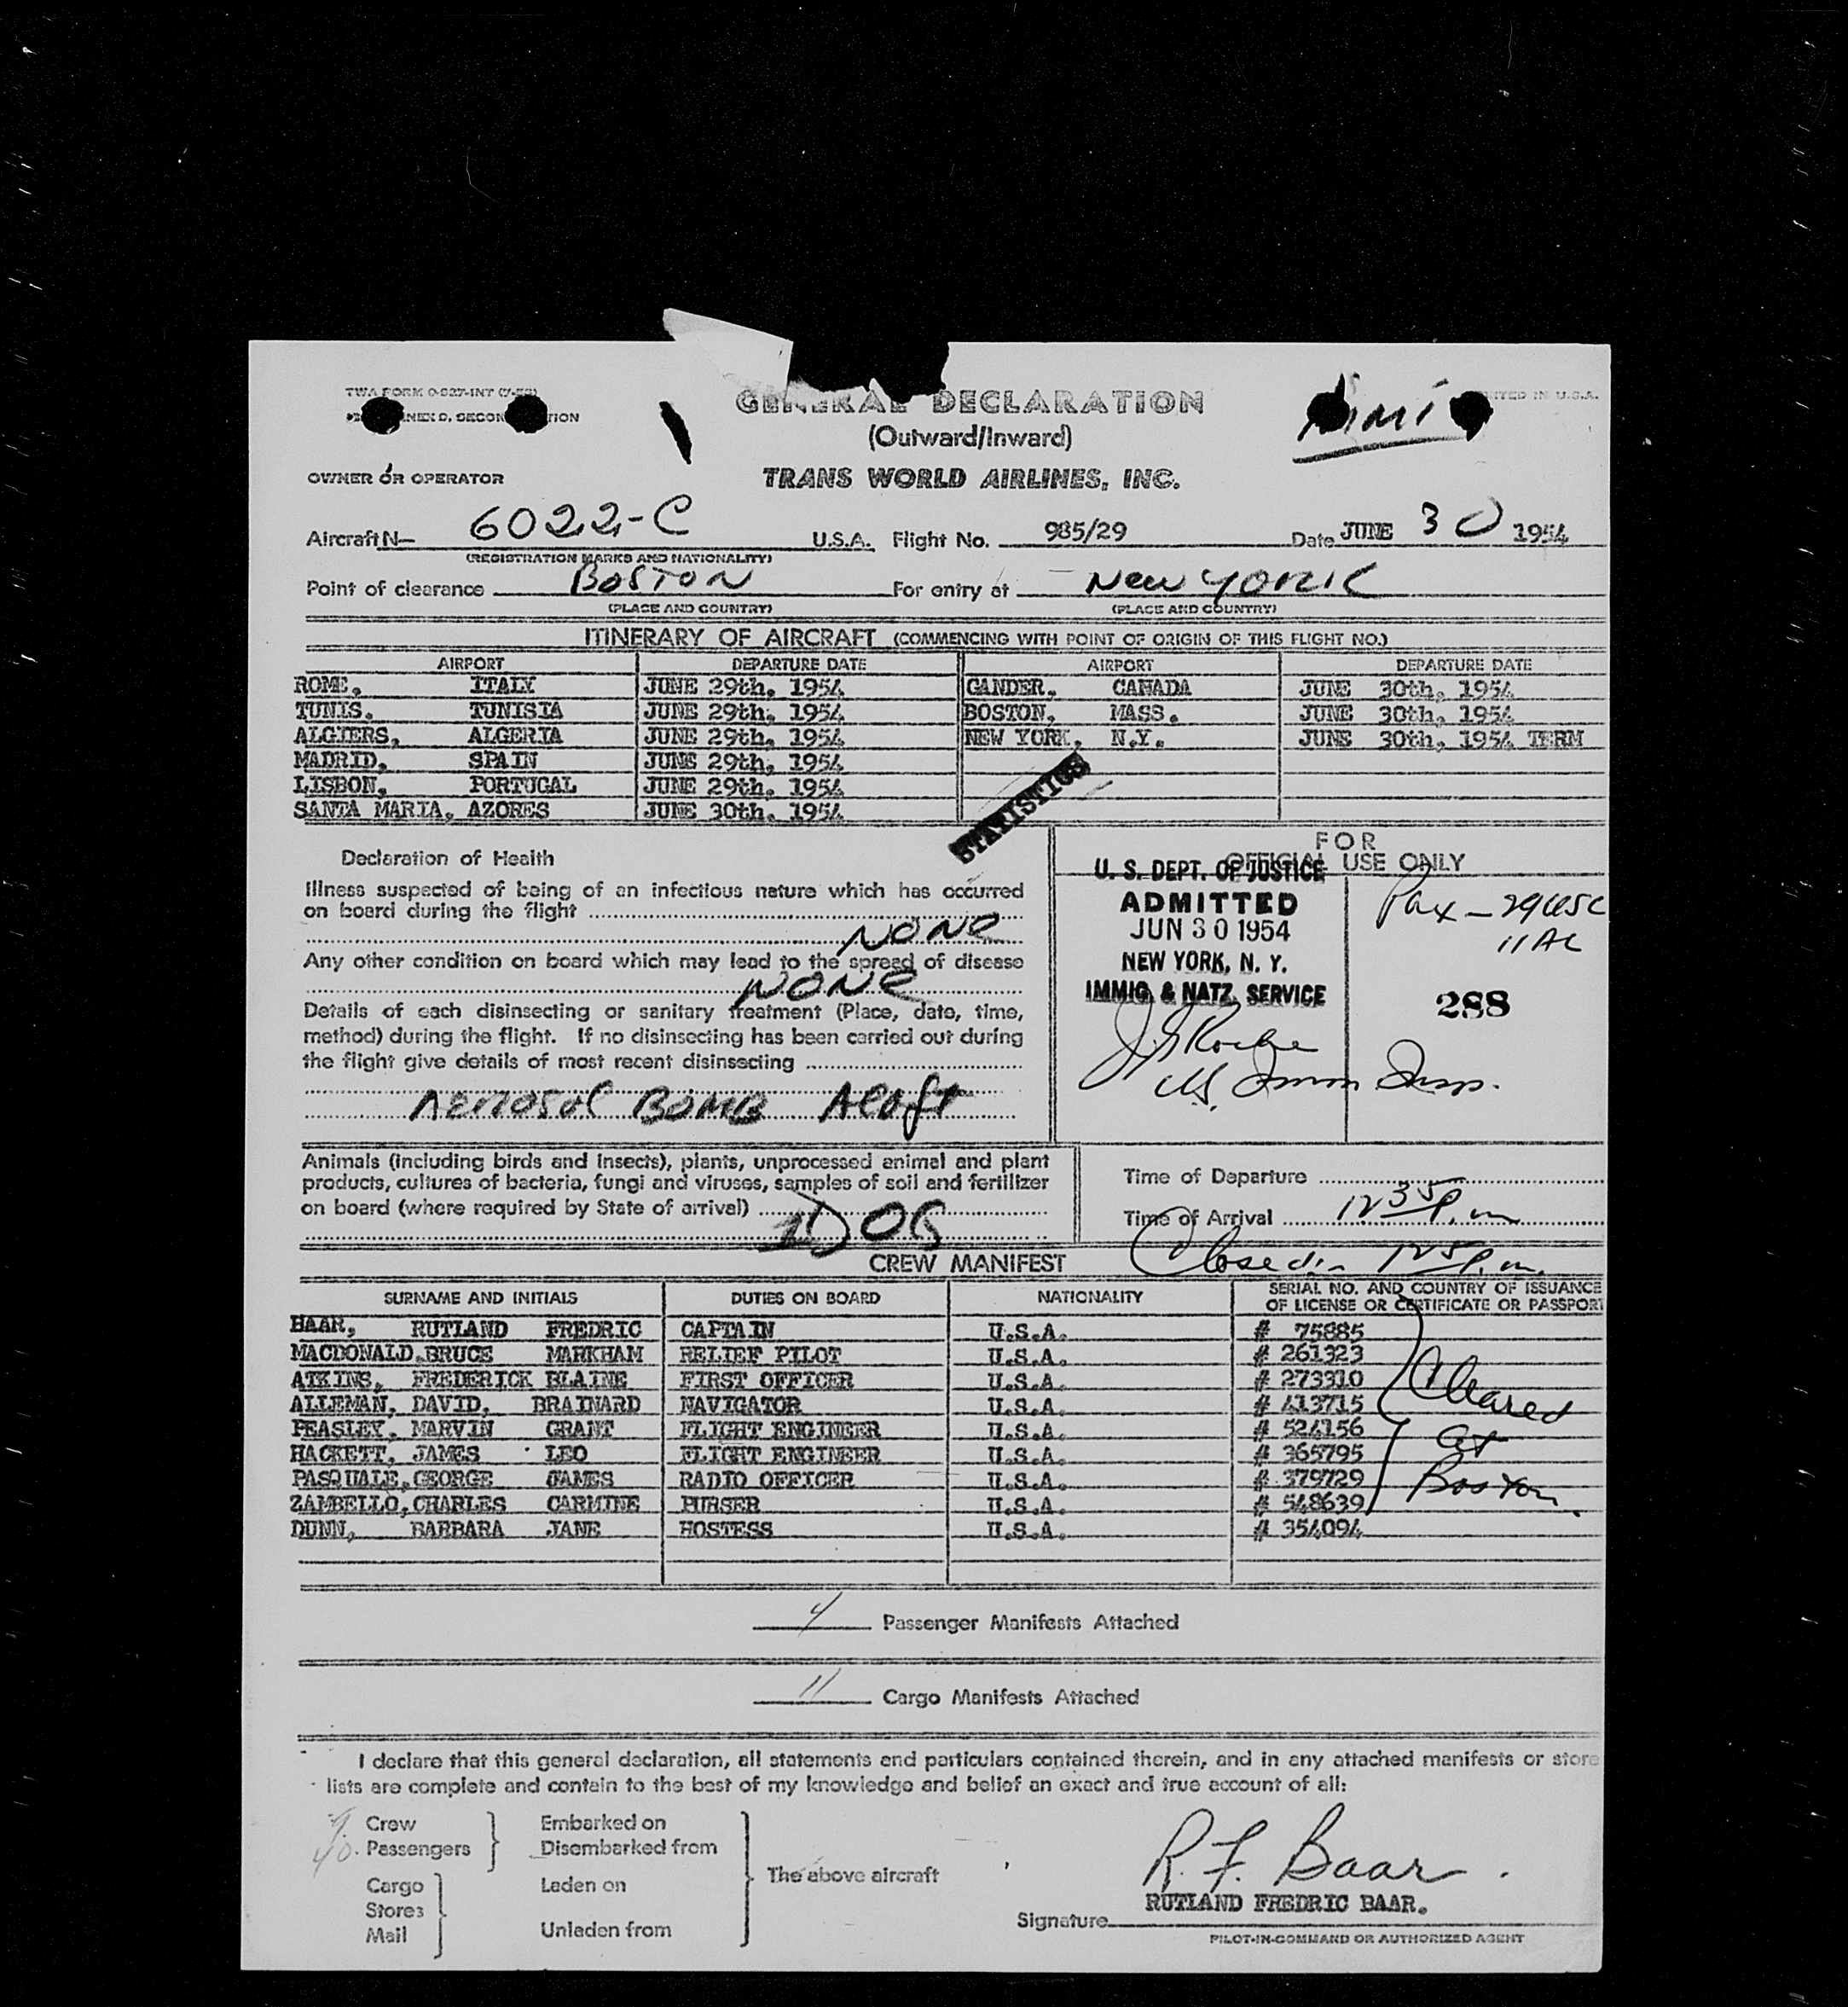 TWA FORM O-927-INT
GENERAL DECLARATION
(Outward/Inward)
OWNER OR OPERATOR TRANS WORLD AIRLINES, INC.
Aircraft N— 6022-C U.S.A. Flight No. 985/29 Date JUNE 30 1954
(REGISTRATION MARKS AND NATIONALITY)
Point of clearance BOSTON For entry at New YORK
(PLACE AND COUNTRY) (PLACE AND COUNTRY)
ITINERARY OF AIRCRAFT (COMMENCING WITH POINT OF ORIGIN OF THIS FLIGHT NO.)
AIRPORT DEPARTURE DATE AIRPORT DEPARTURE DATE
ROME, ITALY JUNE 29th, 1954 GANDER, CANADA JUNE 30th, 1954
TUNIS. TUNISIA JUNE 29th, 1954 BOSTON, MASS. JUNE 30th, 1954
ALGIERS, ALGERIA JUNE 29th, 1954 NEW YORK, N.Y. JUNE 30th, 1954 TERM
MADRID, SPAIN JUNE 29th, 1954
LISBON, PORTUGAL JUNE 29th, 1954
SANTA MARIA, AZORES JUNE 30th, 1954
STATISTICS
Declaration of Health
Illness suspected of being of an infectious nature which has occurred
on board during the flight
NONE
Any other condition on board which may lead to the spread of disease
NONE
Details of each disinsecting or sanitary treatment (Place, date, time,
method) during the flight. If no disinsecting has been carried out during
the flight give details of most recent disinsecting
Aerosol BOMB Aloft
FOR
OFFICIAL USE ONLY
U. S. DEPT. OF JUSTICE
ADMITTED
JUN 30 1954
NEW YORK, N. Y.
IMMIG. & NATZ. SERVICE
Pax - 29 USC
11 AC
288
US. Immn Insp.
Animals (including birds and insects), plants, unprocessed animal and plant
products, cultures of bacteria, fungi and viruses, samples of soil and fertilizer
on board (where required by State of arrival)
1 DOG
Time of Departure
Time of Arrival 12 35 P.m
CREW MANIFEST Closed in 125 P.m.
SURNAME AND INITIALS DUTIES ON BOARD NATIONALITY SERIAL NO. AND COUNTRY OF ISSUANCE
OF LICENSE OR CERTIFICATE OR PASSPORT
BAAR, RUTLAND FREDRIC CAPTAIN U.S.A. # 75885
MACDONALD,BRUCE MARKHAM RELIEF PILOT U.S.A. # 261323
ATKINS, FREDERICK BLAINE FIRST OFFICER U.S.A. # 273310
ALLEMAN, DAVID, BRAINARD NAVIGATOR U.S.A. # 413715
PEASLEY, MARVIN GRANT FLIGHT ENGINEER U.S.A. # 524156
HACKETT, JAMES LEO FLIGHT ENGINEER U.S.A. # 365795
PASQUALE,GEORGE JAMES RADIO OFFICER U.S.A. # 379729
ZAMBELLO,CHARLES CARMINE PURSER U.S.A. # 548639
DUNN, BARBARA JANE HOSTESS U.S.A. # 354094
Cleared
at
Boston.
4 Passenger Manifests Attached
11 Cargo Manifests Attached
I declare that this general declaration, all statements and particulars contained therein, and in any attached manifests or store
lists are complete and contain to the best of my knowledge and belief an exact and true account of all:
9. Crew Embarked on
40. Passengers Disembarked from
The above aircraft
Cargo Laden on
Stores
Mail Unladen from
R. F. Baar.
RUTLAND FREDRIC BAAR.
Signature
PILOT-IN-COMMAND OR AUTHORIZED AGENT